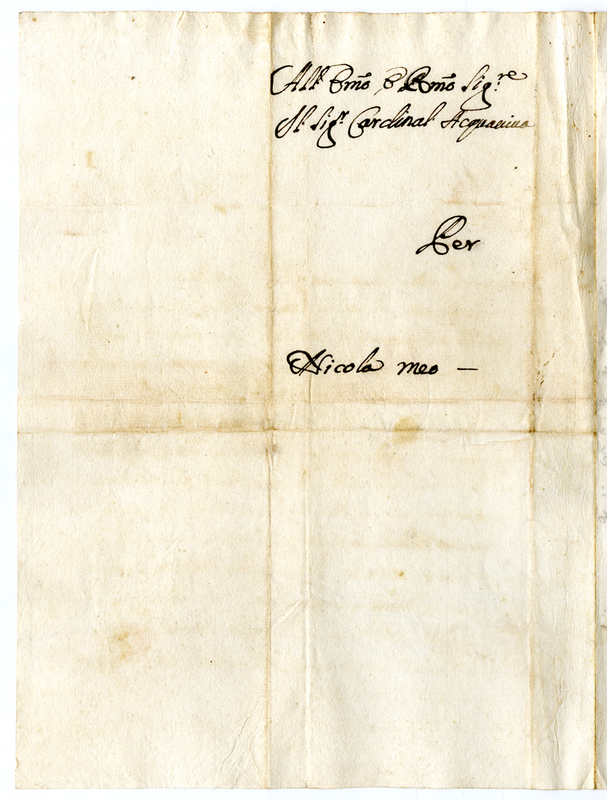 All' Emo, e Rmo Sig.re
Il Sig.r Cardinal Acquaviva
Per
Nicola Meo —